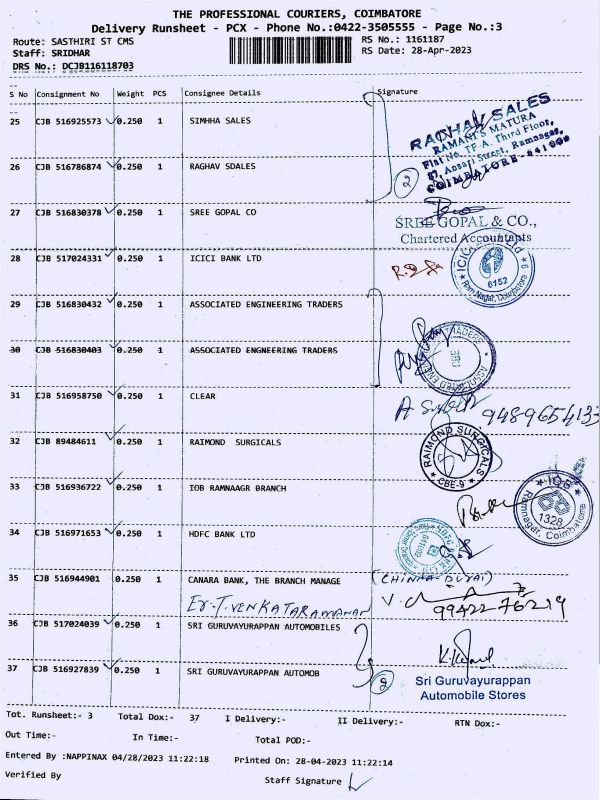 THE PROFESSIONAL COURIERS, COIMBATORE
Delivery Runsheet - PCX - Phone No.:0422-3505555 - Page No.:3
Route: SASTHIRI ST CMS RS No.: 1161187
Staff: SRIDHAR RS Date: 28-Apr-2023
DRS No.: DCJB116118703
S No Consignment No Weight PCS Consignee Details Signature
25 CJB 516925573 0.250 1 SIMHHA SALES
RAGHAV SALES
RAMANI'S MATURA
Flat No. TF-A, Third Floor,
Ansari Street, Ramnagar,
COIMBATORE-641009
26 CJB 516786874 0.250 1 RAGHAV SDALES
2
27 CJB 516830378 0.250 1 SREE GOPAL CO
SREE GOPAL & CO.,
Chartered Accountants
28 CJB 517024331 0.250 1 ICICI BANK LTD
ICICI
6152
Ram Nagar, Coimbatore
29 CJB 516830432 0.250 1 ASSOCIATED ENGINEERING TRADERS
30 CJB 516830403 0.250 1 ASSOCIATED ENGNEERING TRADERS
31 CJB 516958750 0.250 1 CLEAR
9489654133
32 CJB 89484611 0.250 1 RAIMOND SURGICALS
RAIMOND SURGICALS
CBE-9
33 CJB 516936722 0.250 1 IOB RAMNAAGR BRANCH
IOB
1328
Ramnagar, Coimbatore
34 CJB 516971653 0.250 1 HDFC BANK LTD
35 CJB 516944901 0.250 1 CANARA BANK, THE BRANCH MANAGE
(CHINNA DURAI)
Er.T.VENKATARAMANAN
99422 76219
36 CJB 517024039 0.250 1 SRI GURUVAYURAPPAN AUTOMOBILES
37 CJB 516927839 0.250 1 SRI GURUVAYURAPPAN AUTOMOB
2
Sri Guruvayurappan
Automobile Stores
Tot. Runsheet:- 3 Total Dox:- 37 I Delivery:- II Delivery:- RTN Dox:-
Out Time:- In Time:- Total POD:-
Entered By :NAPPINAX 04/28/2023 11:22:18 Printed On: 28-04-2023 11:22:14
Verified By Staff Signature